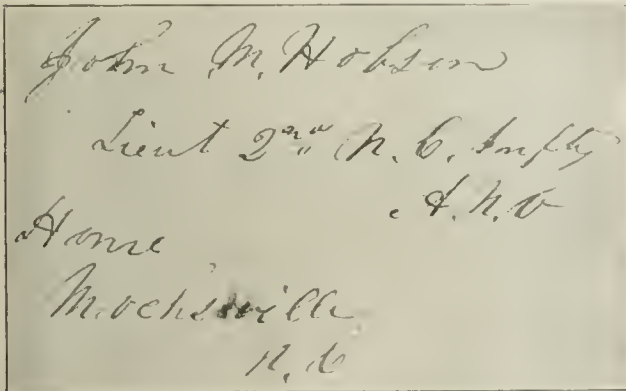 John M. Hobson
Lieut 2nd N. C. Infty
A. N. V
Home
Mocksville
N. C